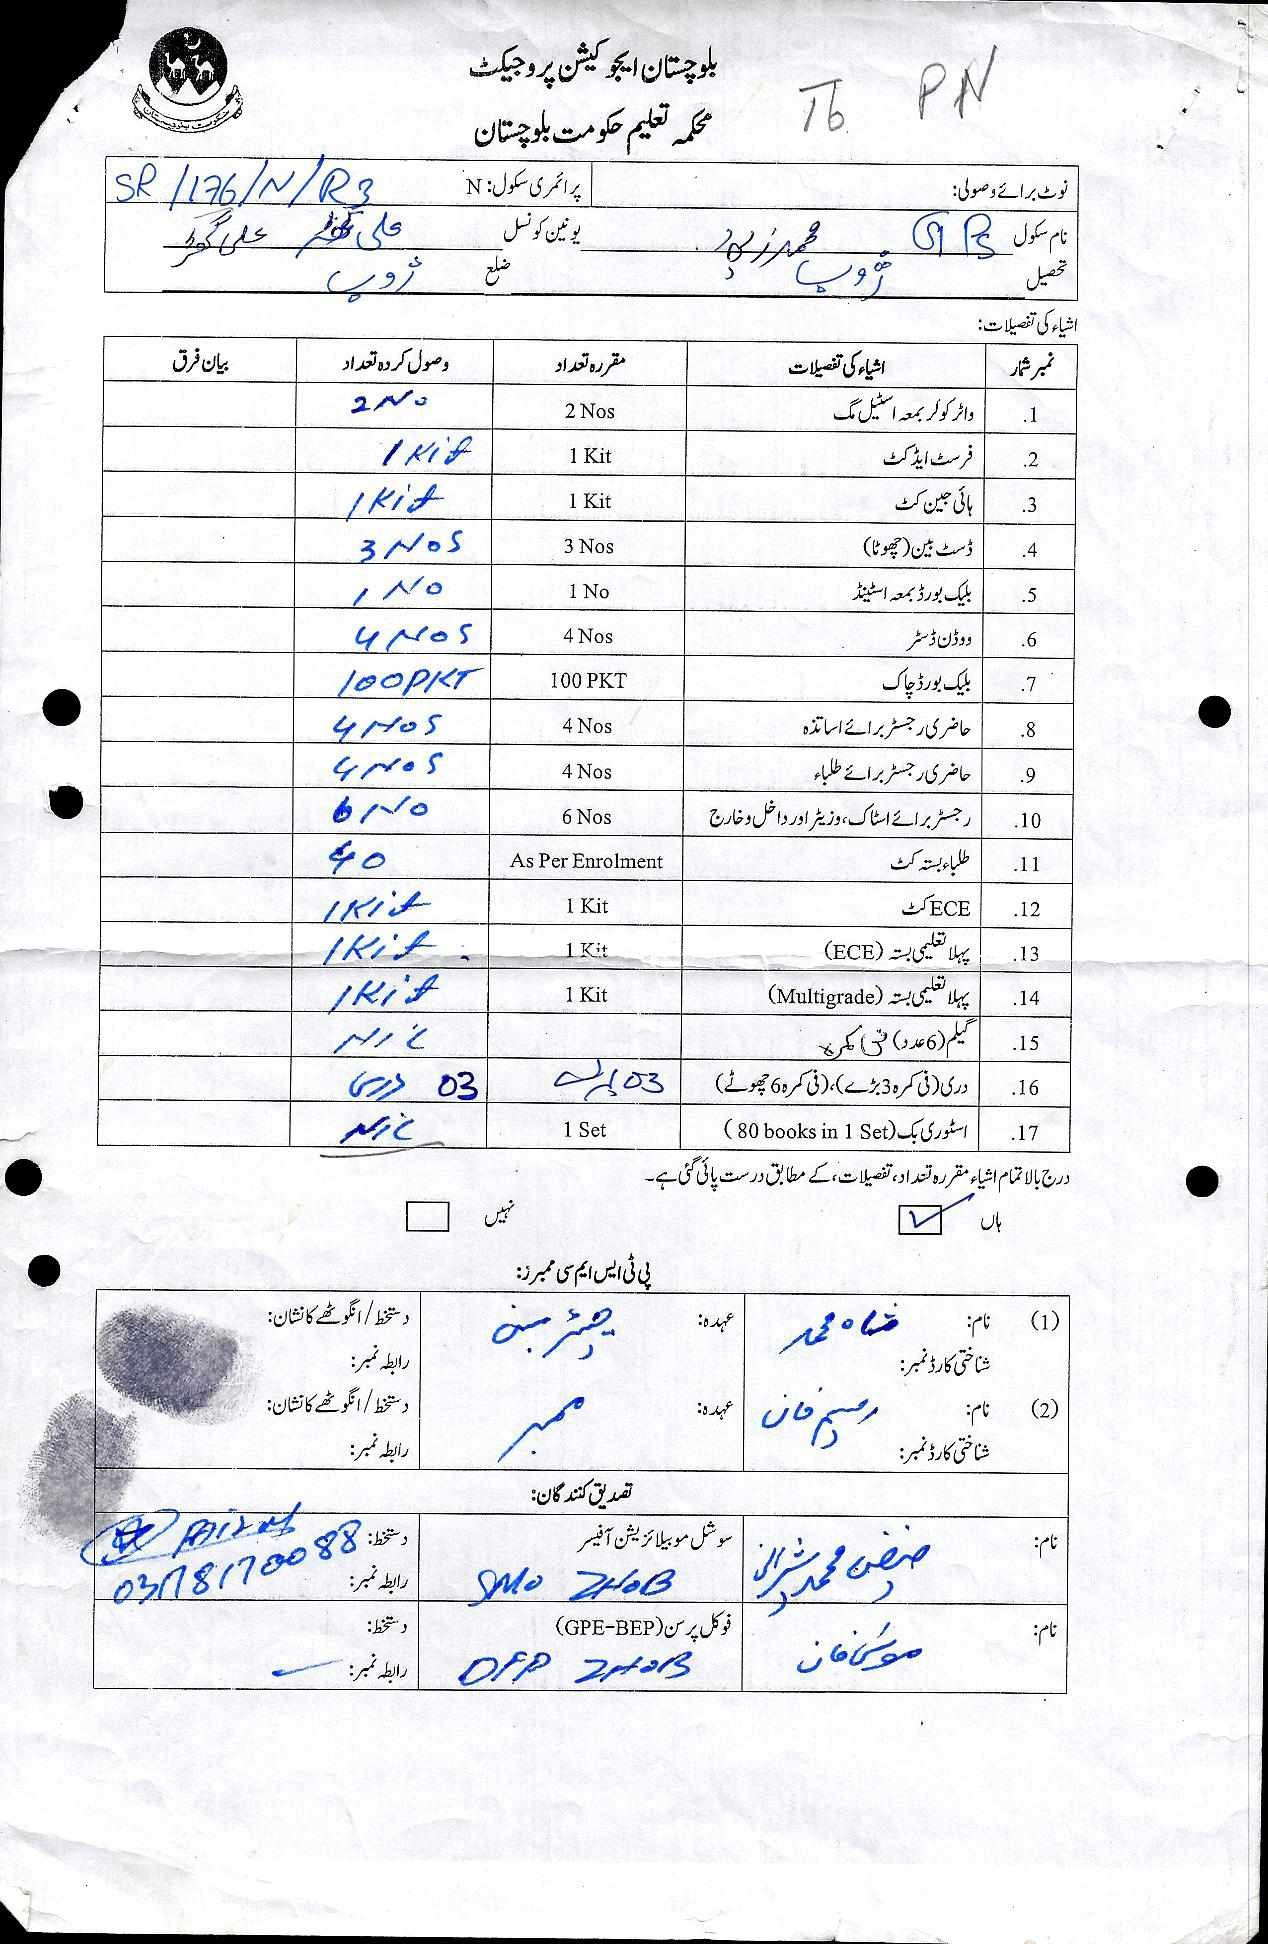 بلوچستان ایجوکیشن پروجیکٹ
محکمہ تعلیم حکومت بلوچستان
PN
نوٹ برائے وصولی: پرائمری سکول: N SR/176/N/R3
نام سکول GPS محمدزئی یونین کونسل علی
تحصیل ژوب ضلع ژوب
اشیاء کی تفصیلات:
نمبر شمار اشیاء کی تفصیلات مقررہ تعداد وصول کردہ تعداد بیان فرق
1. واٹر کولر بمعہ اسٹیل مگ 2 Nos 2 No
2. فرسٹ ایڈ کٹ 1 Kit 1 Kit
3. ہائی جین کٹ 1 Kit 1 Kit
4. ڈسٹ بین (چھوٹا) 3 Nos 3 Nos
5. بلیک بورڈ بمعہ اسٹینڈ 1 No 1 No
6. ووڈن ڈسٹر 4 Nos 4 Nos
7. بلیک بورڈ چاک 100 PKT 100 PKT
8. حاضری رجسٹر برائے اساتذہ 4 Nos 4 Nos
9. حاضری رجسٹر برائے طلباء 4 Nos 4 Nos
10. رجسٹر برائے اسٹاک، وزیٹر اور داخل و خارج 6 Nos 6 No
11. طلباء بستہ کٹ As Per Enrolment 40
12. ECE کٹ 1 Kit 1 Kit
13. پہلا تعلیمی بستہ (ECE) 1 Kit 1 Kit
14. پہلا تعلیمی بستہ (Multigrade) 1 Kit 1 Kit
15. گیلم (6 عدد) فی کمرہ Nil
16. دری (فی کمرہ 3 بڑے)، (فی کمرہ 6 چھوٹے) 03 03 دری
17. اسٹوری بک (80 books in 1 Set) 1 Set Nil
درج بالا تمام اشیاء مقررہ تعداد، تفصیلات، کے مطابق درست پائی گئی ہے۔
ہاں نہیں
پی ٹی ایس ایم سی ممبرز:
(1) نام: شاہ محمد عہدہ: چیئرمین دستخط/انگوٹھے کا نشان:
شناختی کارڈ نمبر: رابطہ نمبر:
(2) نام: رحیم خان عہدہ: ممبر دستخط/انگوٹھے کا نشان:
شناختی کارڈ نمبر: رابطہ نمبر:
تصدیق کنندگان:
نام: فیض محمد شیرانی سوشل موبیلائزیشن آفیسر دستخط:
SMO ZHOB رابطہ نمبر: 03178170088
نام: موسیٰ خان فوکل پرسن (GPE-BEP) دستخط:
DFP ZHOB رابطہ نمبر: